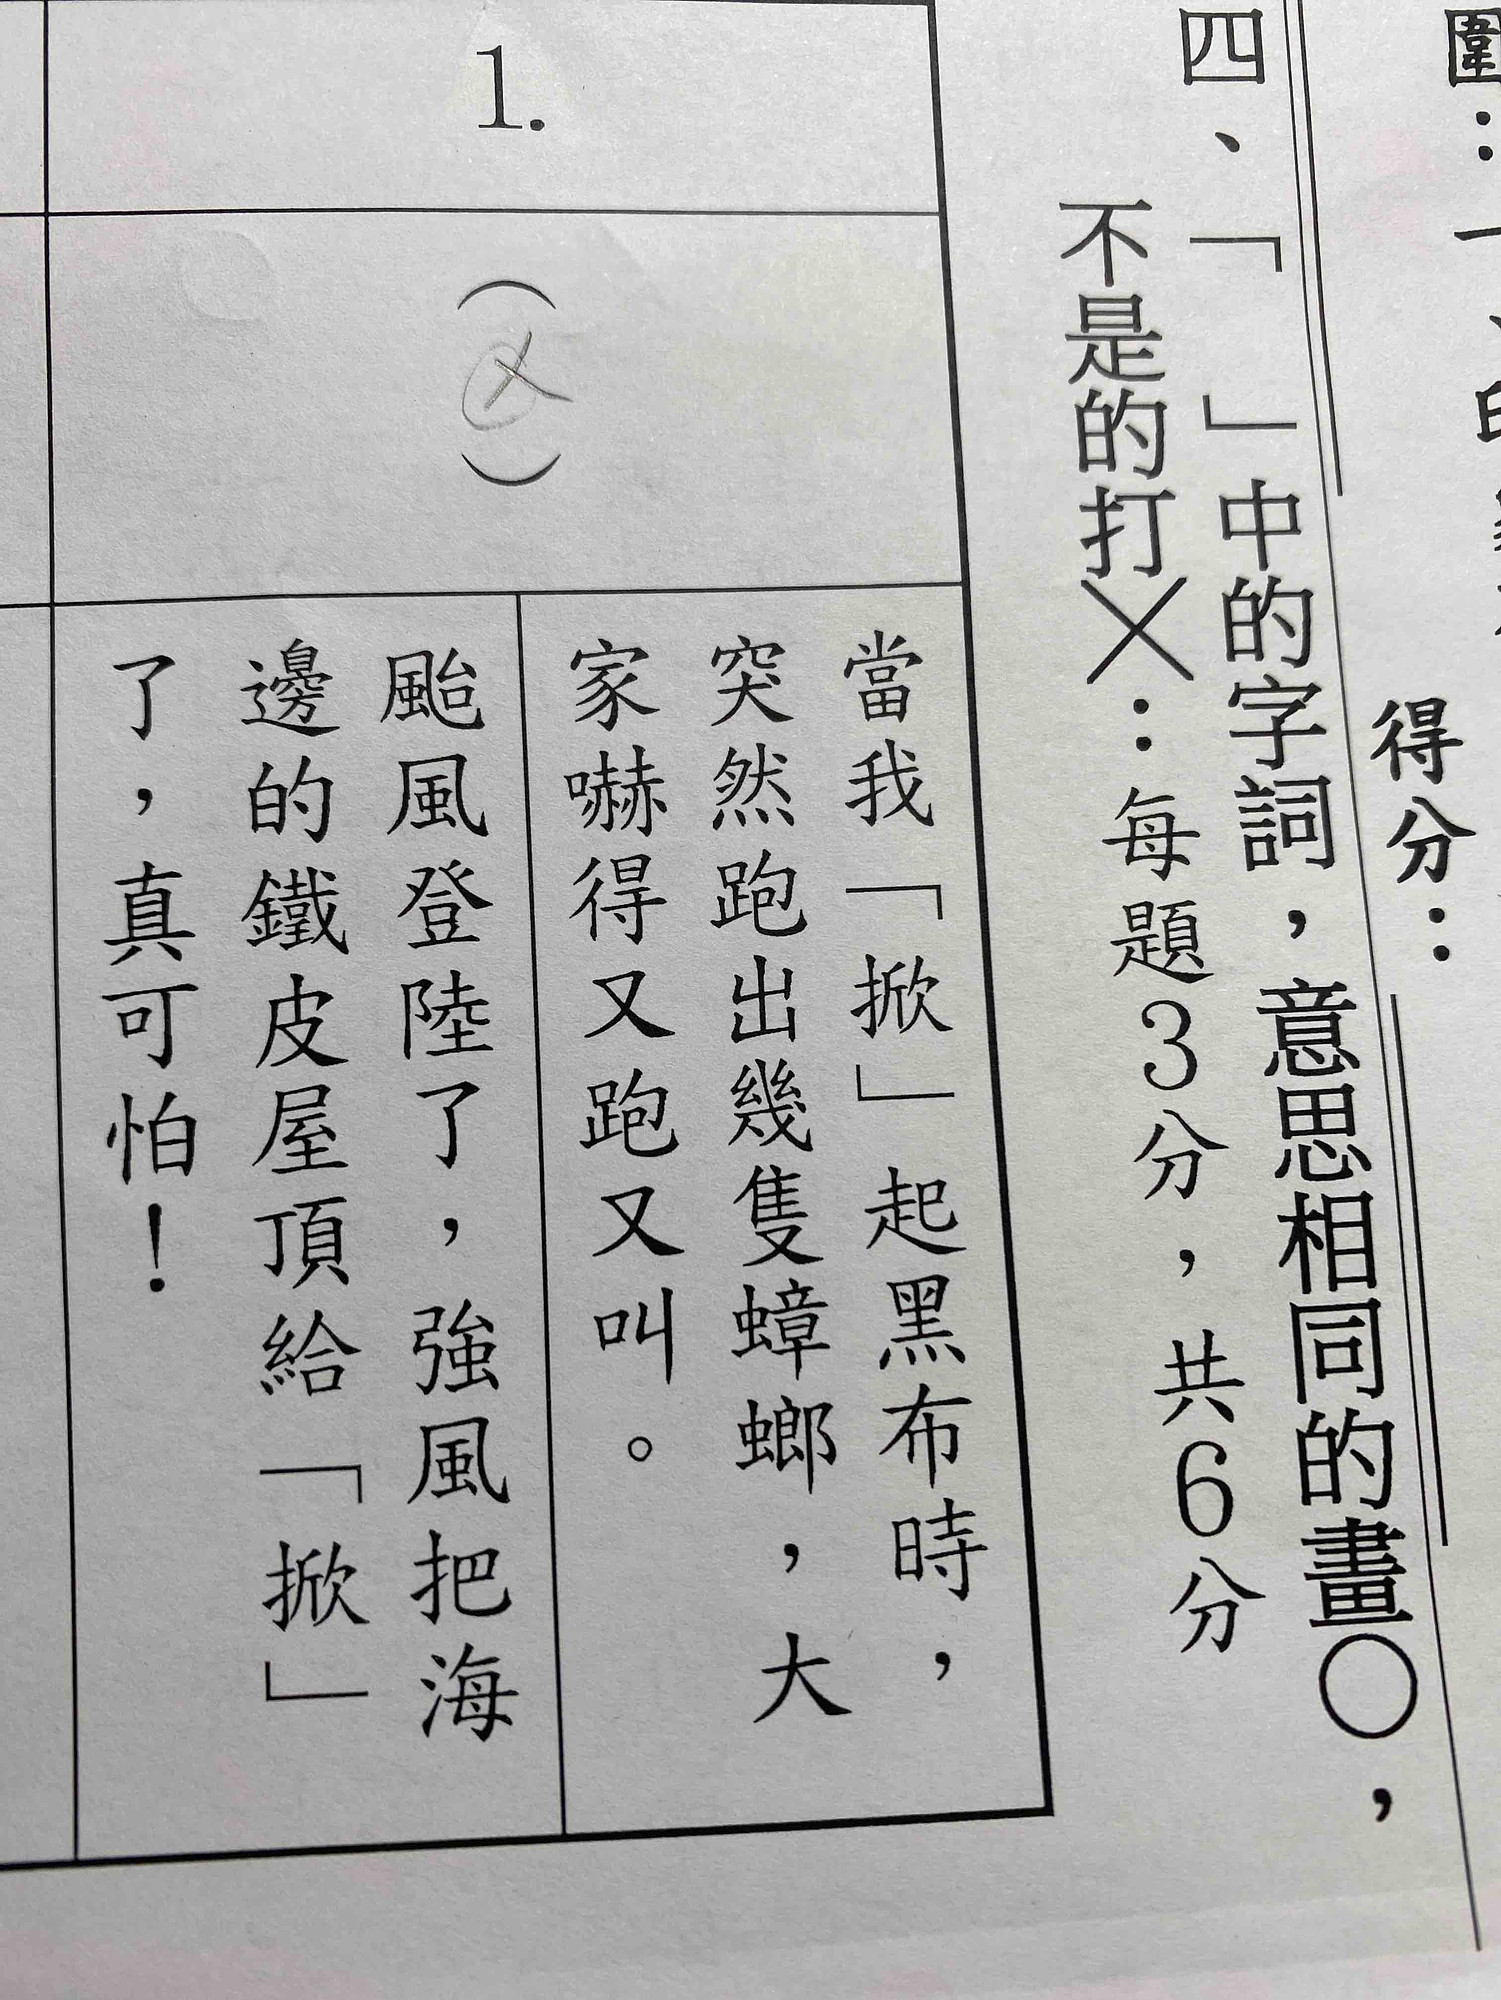 得分：
四、「　」中的字詞，意思相同的畫○，
不是的打╳：每題3分，共6分
1.
（×）
當我「掀」起黑布時，
突然跑出幾隻蟑螂，大
家嚇得又跑又叫。
颱風登陸了，強風把海
邊的鐵皮屋頂給「掀」
了，真可怕！